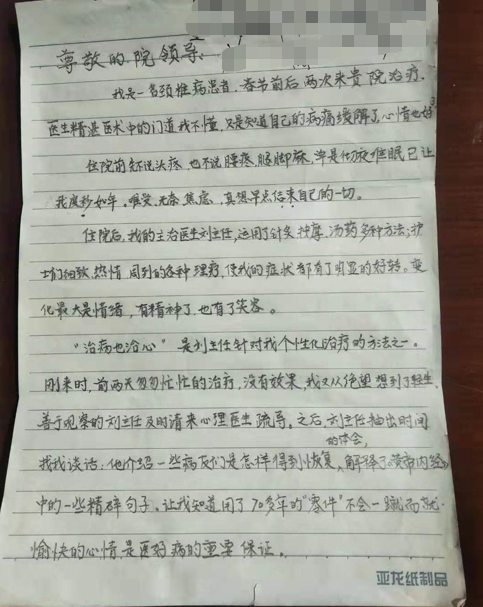 尊敬的院领导:
我是一名颈椎病患者,春节前后两次来贵院治疗。
医生精湛医术中的门道我不懂,只是知道自己的病痛缓解了,心情也好
住院前先不说头疼,也不说腰疼,腿脚麻,单是彻夜难眠已让
我度秒如年,难受、无奈、焦虑,真想早点结束自己的一切。
住院后,我的主治医生刘主任,运用了针灸、按摩、汤药多种方法;护
士们细致、热情、周到的各种理疗,使我的症状都有了明显的好转。变
化最大是情绪,有精神了,也有了笑容。
“治病也治心”是刘主任针对我个性化治疗的方法之一。
刚来时,前两天匆匆忙忙的治疗,没有效果,我又从绝望想到了轻生,
善于观察的刘主任及时请来心理医生疏导,之后,刘主任抽出时间
的体会,
找我谈话:他介绍一些病友们是怎样得到恢复,解释了黄帝内经
中的一些精辟句子,让我知道用了70多年的“零件”不会一蹴而就.
愉快的心情是医好病的重要保证。
亚龙纸制品